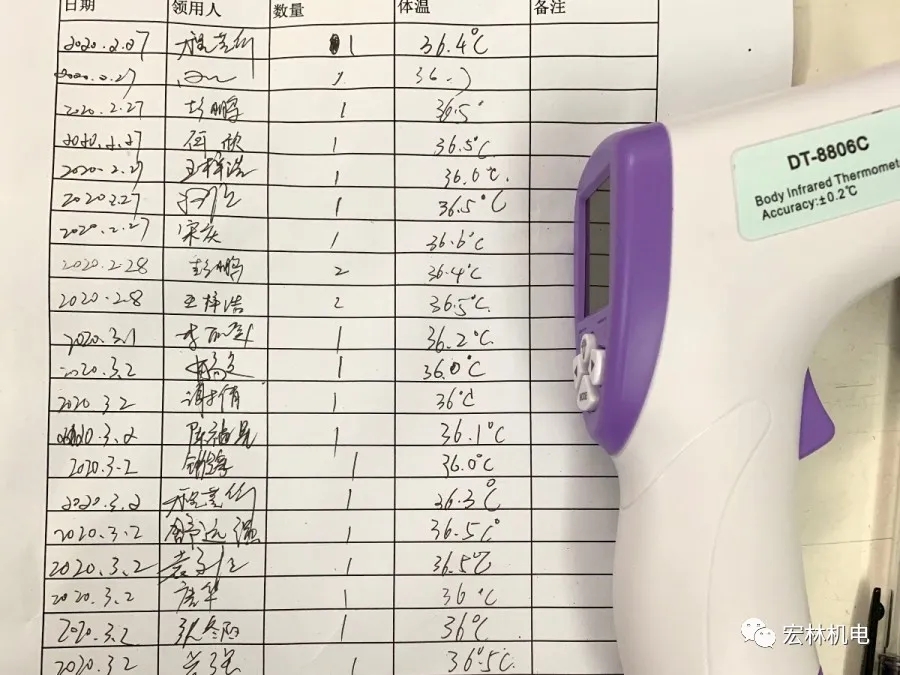 日期 领用人 数量 体温 备注
2020.2.27 1 36.4℃
2020.2.27 1 36.
2020.2.27 彭鹏 1 36.5°
2020.2.27 何欣 1 36.5℃
2020.2.27 王梓浩 1 36.6℃.
2020.2.27 1 36.5℃
2020.2.27 宋庆 1 36.6℃
2020.2.28 彭鹏 2 36.4℃
2020.2.8 王梓浩 2 36.5℃
2020.3.1 1 36.2℃
2020.3.2 1 36.0℃
2020.3.2 谢倩 1 36℃
2020.3.2 1 36.1℃
2020.3.2 1 36.0℃
2020.3.2 1 36.3℃
2020.3.2 舒远强 1 36.5℃
2020.3.2 1 36.5℃
2020.3.2 唐华 1 36℃
2020.3.2 1 36℃.
2020.3.2 1 36.5℃.
DT-8806C
Body Infrared Thermomet
Accuracy:±0.2℃
MODE
宏林机电